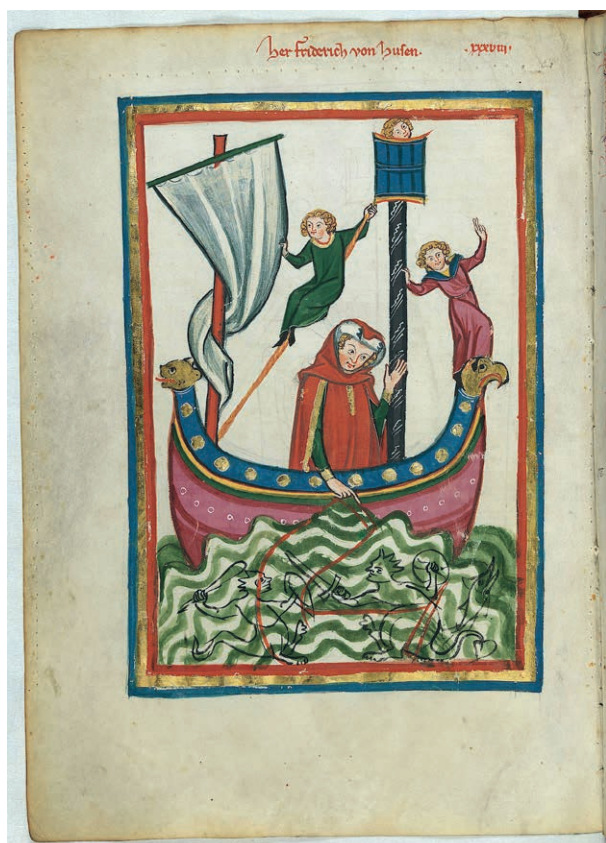 Her Friderich von Husen. .xxxviii.